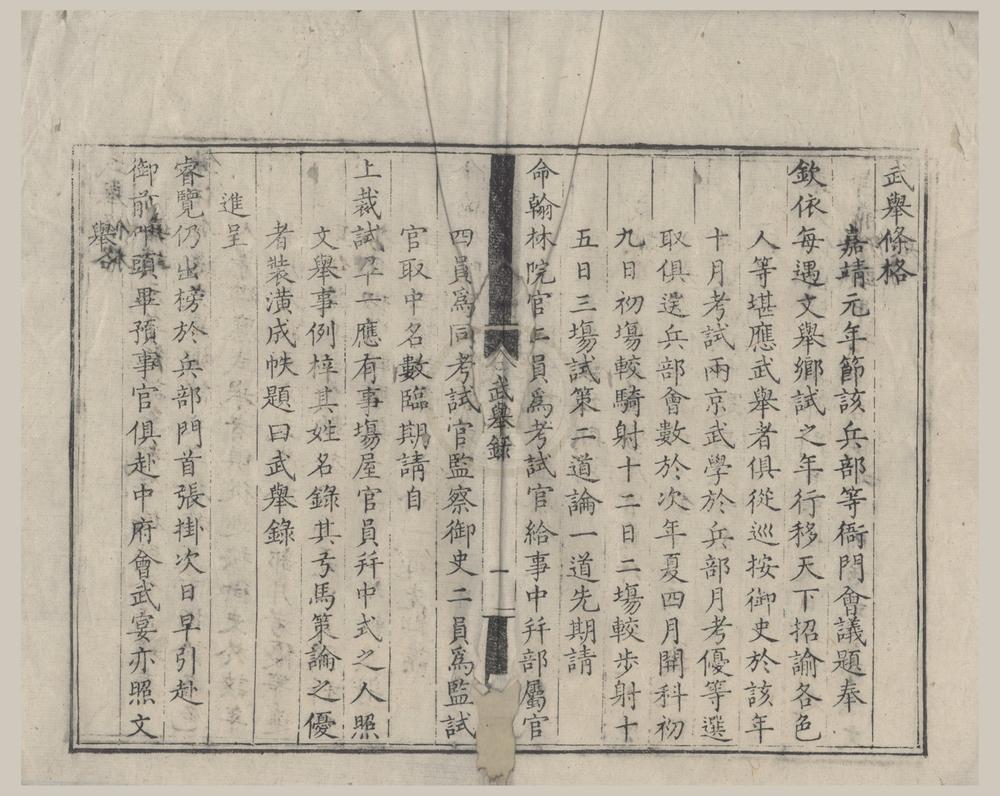 武舉條格
嘉靖元年節該兵部等衙門會議題奉
欽依每遇文舉鄉試之年行移天下招諭各色
人等堪應武舉者俱從巡按御史於該年
十月考試兩京武學於兵部月考優等選
取俱送兵部會數於次年夏四月開科初
九日初塲較騎射十二日二塲較步射十
五日三塲試策二道論一道先期請
命翰林院官二員爲考試官給事中幷部屬官
武舉錄
一
四員爲同考試官監察御史二員爲監試
官取中名數臨期請自
上裁試卒一應有事塲屋官員幷中式之人照
文舉事例梓其姓名錄其弓馬策論之優
者裝潢成帙題曰武舉錄
進呈
睿覽仍出榜於兵部門首張掛次日早引赴
御前叩頭畢預事官俱赴中府會武宴亦照文
舉